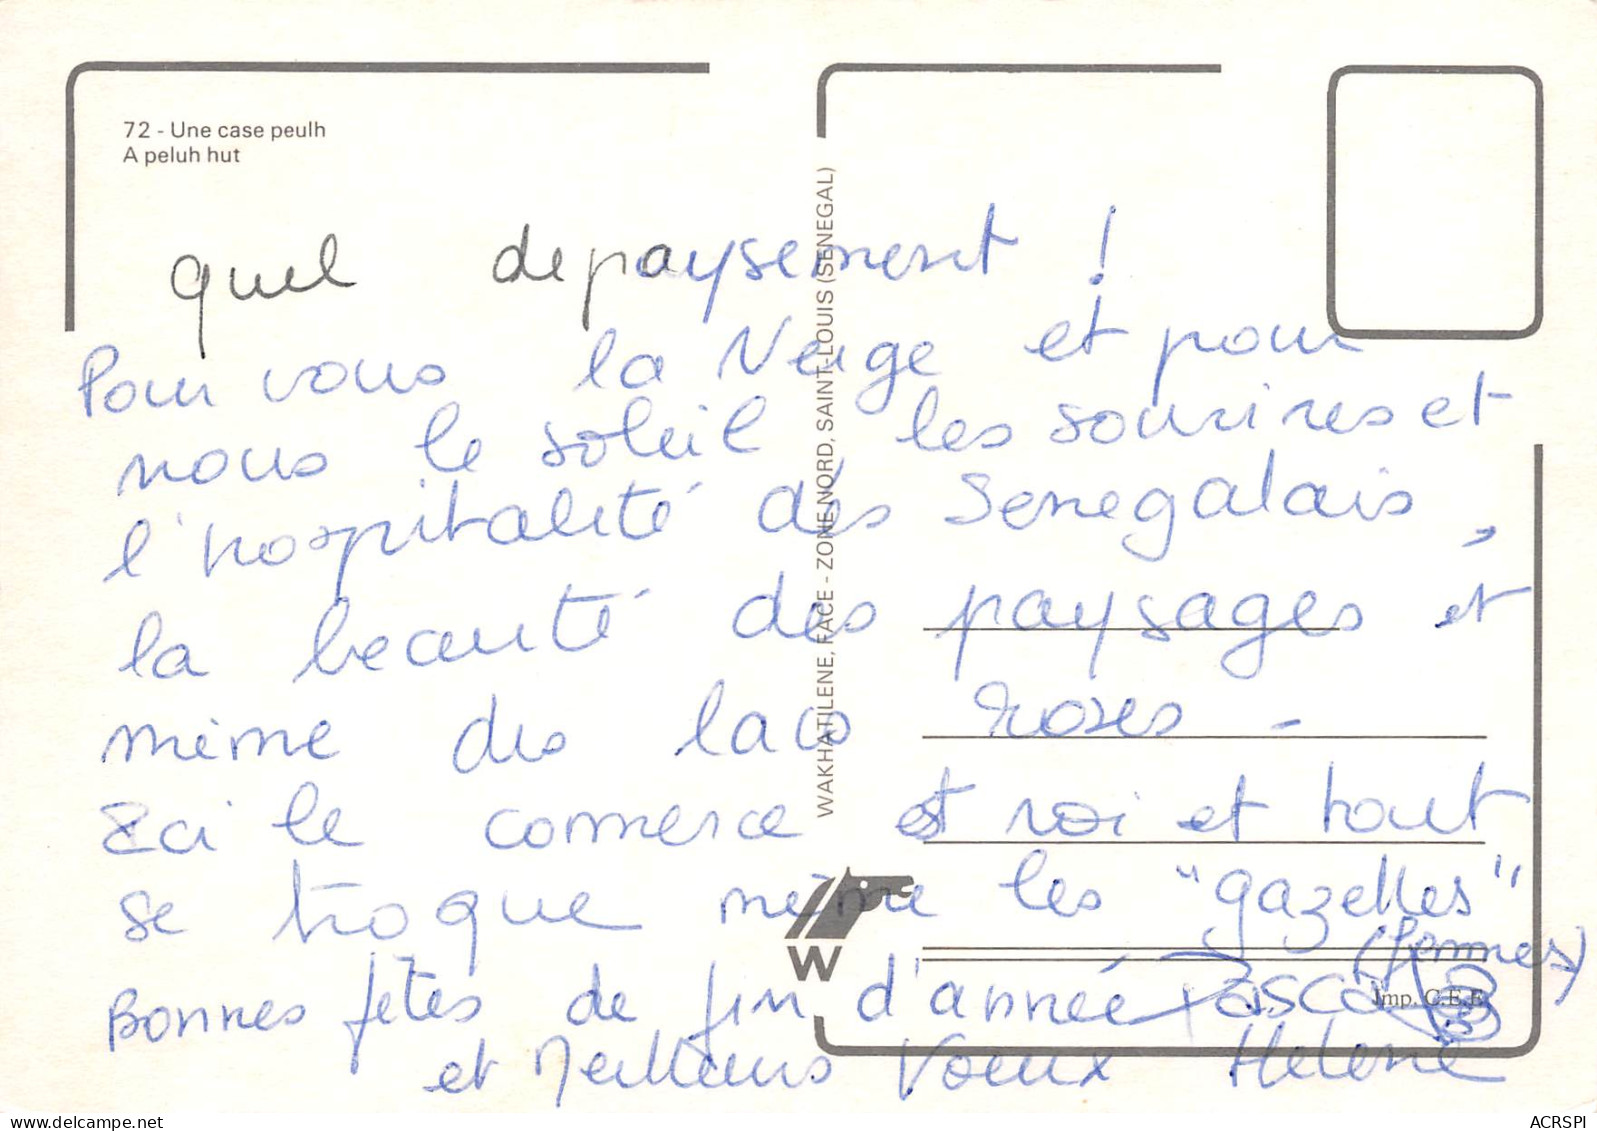 72 - Une case peulh
A peluh hut
WAKHATILENE, FACE - ZONE NORD, SAINT-LOUIS (SENEGAL)
quel depaysement !
Pour vous la Neige et pour
nous le soleil les sourires et
l'hospitalité des Senegalais,
la beauté des paysages et
même des lacs roses -
Ici le commerce est roi et tout
se troque même les "gazelles"
(femmes)
W
Bonnes fêtes de fin d'année Pascal
Imp. C.E.F.
et Meilleurs Voeux Helene
ACRSPI